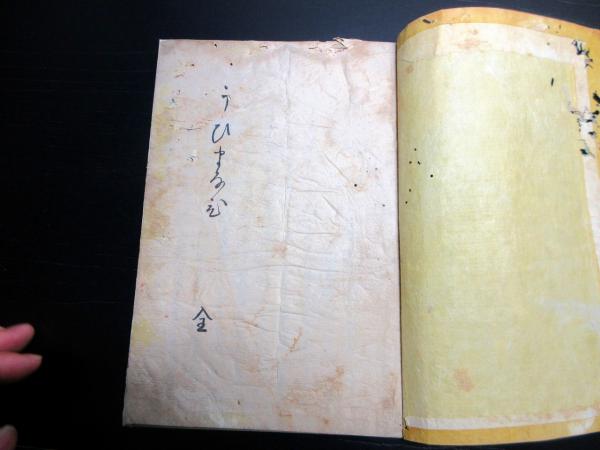 うひまなひ
全